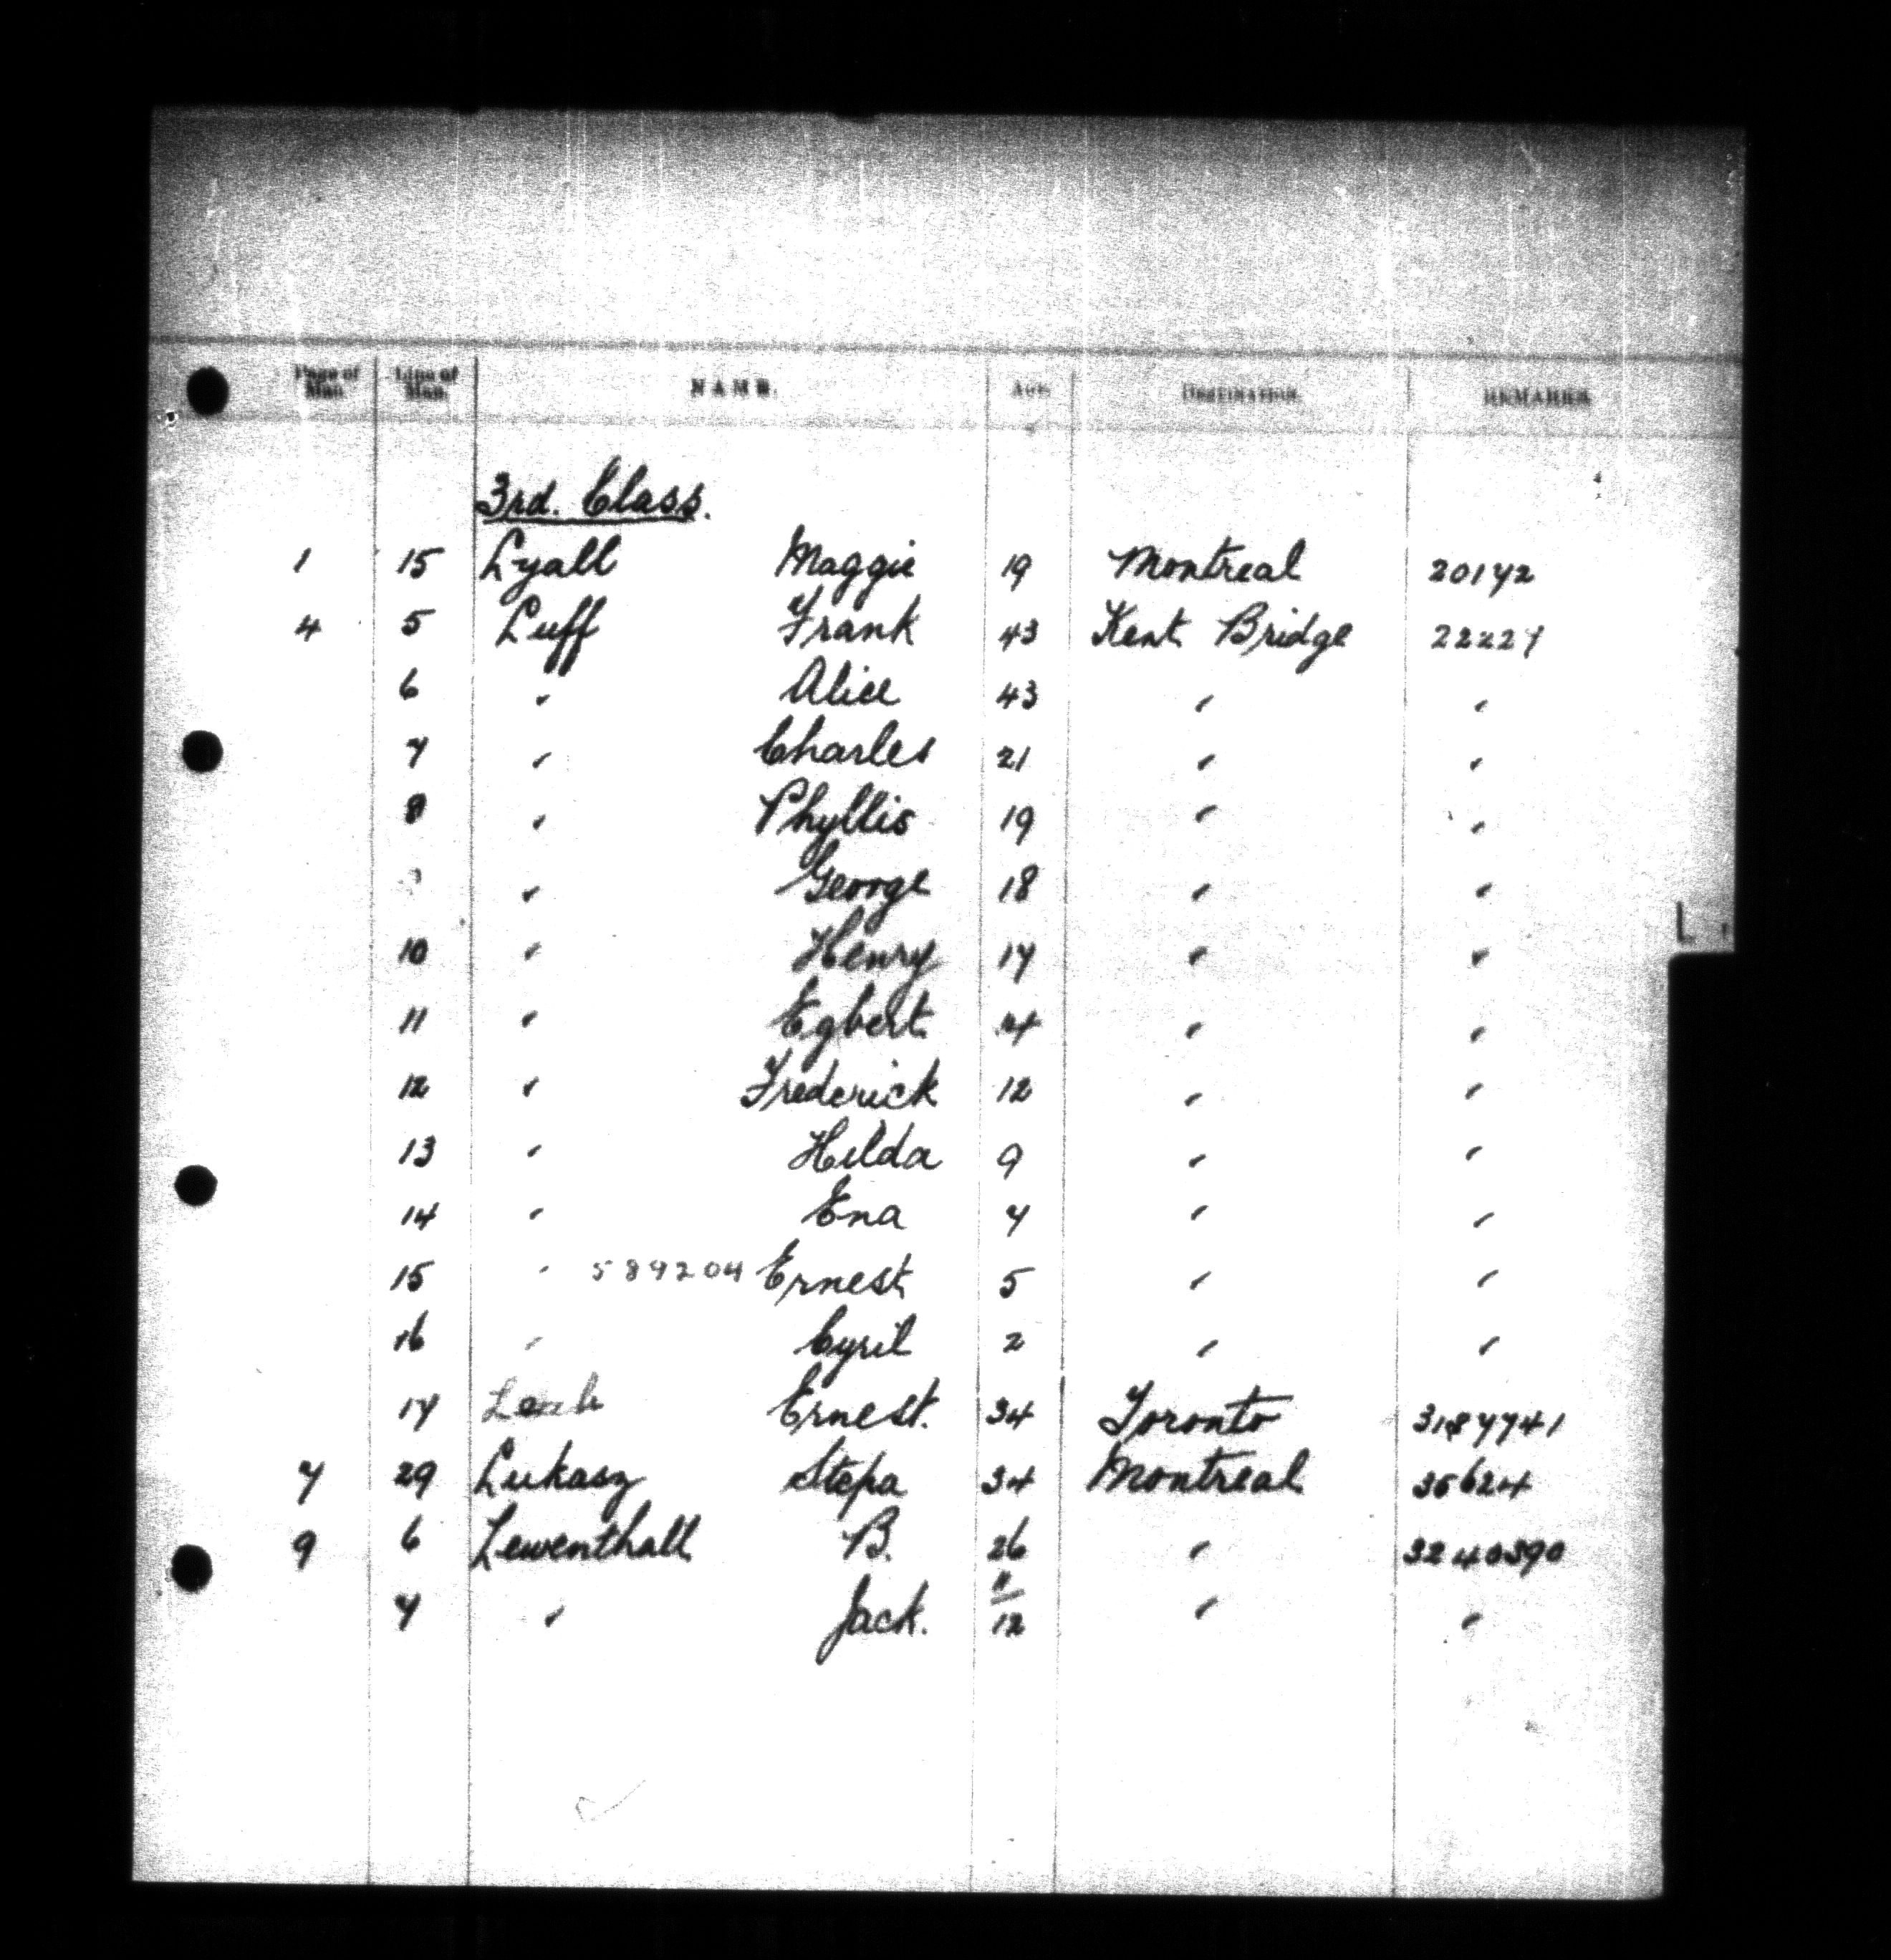 Page of Man. Line of Man. NAME. Age DESTINATION. REMARKS
3rd. Class.
1 15 Lyall Maggie 19 Montreal 20172
4 5 Luff Frank 43 Kent Bridge 22227
6 " Alice 43 " "
7 " Charles 21 " "
8 " Phyllis 19 " "
" George 18 " "
L
10 " Henry 17 " "
11 " Egbert. 14 " "
12 " Frederick 12 " "
13 " Hilda 9 " "
14 " Ena 7 " "
15 " 589204 Ernest 5 " "
16 " Cyril 2 " "
17 Ernest. 34 Toronto 3187741
7 29 Lukasz Stepa 34 Montreal 35624
9 6 Lewenthall B. 26 " 3240390
7 " Jack. 11/12 " "